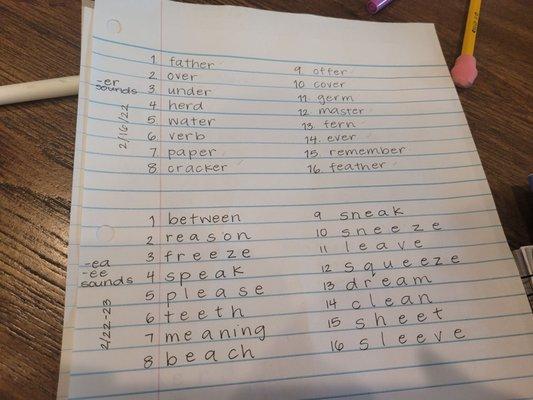 1 father
2 over
3 under
4 herd
5 water
6 verb
7 paper
8 cracker
9 offer
10 cover
11 germ
12 master
13 fern
14. ever
15. remember
16. feather
-er
sounds
2/16/22
1 between
2 reason
3 freeze
4 speak
5 please
6 teeth
7 meaning
8 beach
9 sneak
10 sneeze
11 leave
12 squeeze
13 dream
14 clean
15 sheet
16 sleeve
-ea
-ee
sounds
2/22-23